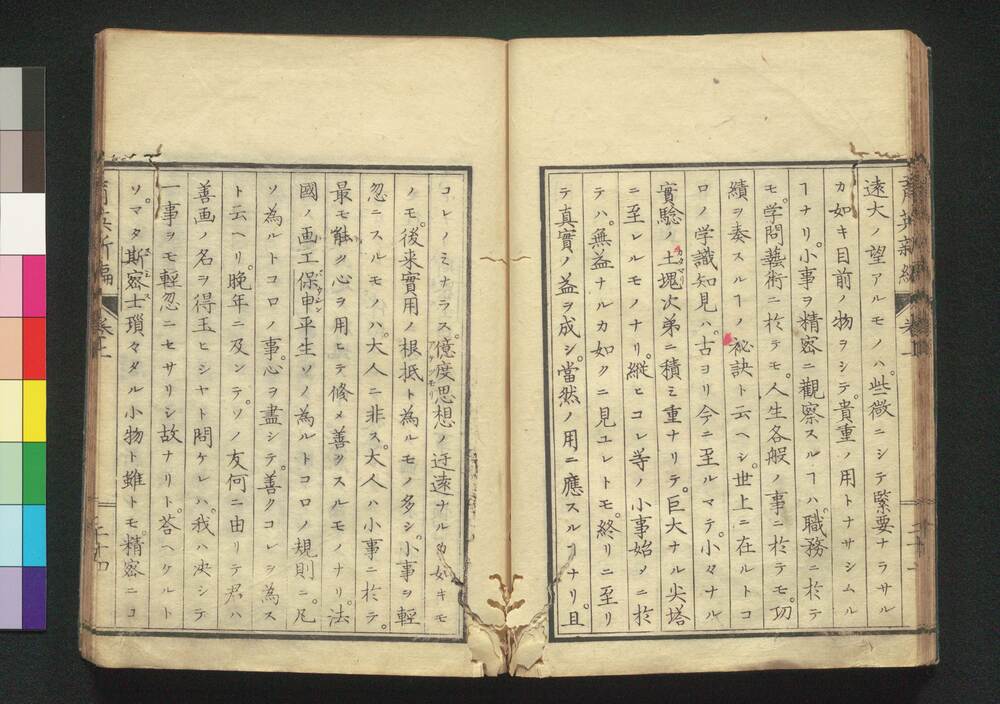 遠大ノ望アルモノハ。些微ニシテ緊要ナラサル
カ如キ目前ノ物ヲシテ。貴重ノ用トナサシムル
ヿナリ。小事ヲ精密ニ觀察スルヿハ。職務ニ於テ
モ。学問藝術ニ於テモ。人生各般ノ事ニ於テモ。功
績ヲ奏スルヿノ祕訣ト云ヘシ。世上ニ在ルトコ
ロノ学識知見ハ。古ヨリ今ニ至ルマテ。小々ナル
實驗ノ土塊カタマリ次第ニ積ミ重ナリテ。巨大ナル尖塔
ニ至レルモノナリ。縦ヒコレ等ノ小事始メニ於
テハ。無益ナルカ如クニ見ユレトモ。終リニ至リ
テ真實ノ益ヲ成シ。當然ノ用ニ應スルヿナリ。且
コレノミナラス。億度思想ノ迂遠ナルカ如キモ
ノモ。後来實用ノ根抵ト為ルモノ多シ。小事ヲ輕
忽ニスルモノハ。大人ニ非ス。大人ハ小事ニ於テ。
最モ觕ク心ヲ用ヒテ修メ善クスルモノナリ。法
國ノ画工保申平生ソノ為ルトコロノ規則ニ。凡
ソ為ルトコロノ事。心ヲ盡シテ。善クコレヲ為ス
ト云ヘリ。晩年ニ及ンテ。ソノ友何ニ由リテ君ハ
善画ノ名ヲ得玉ヒシヤト問ケレハ。我ハ决シテ
一事ヲモ輕忽ニセサリシ故ナリト。荅ヘケルト
ソ。マタ斯密士瑣々タル小物ト雖トモ。精密ニコ
新編